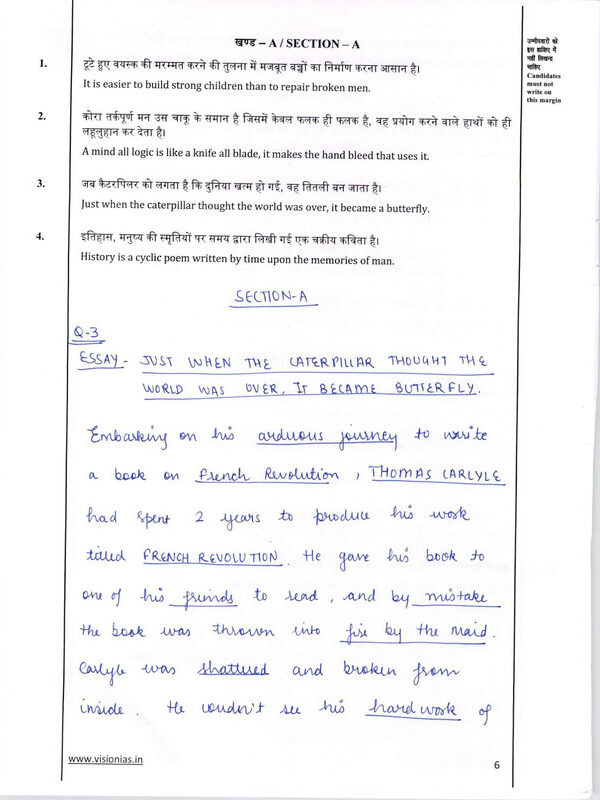 खण्ड – A / SECTION – A
उम्मीदवारों को
इस हाशिए में
नहीं लिखना
चाहिए
Candidates
must not
write on
this margin
1. टूटे हुए वयस्क की मरम्मत करने की तुलना में मजबूत बच्चों का निर्माण करना आसान है।
It is easier to build strong children than to repair broken men.
2. कोरा तर्कपूर्ण मन उस चाकू के समान है जिसमें केवल फलक ही फलक है, वह प्रयोग करने वाले हाथों को ही
लहूलुहान कर देता है।
A mind all logic is like a knife all blade, it makes the hand bleed that uses it.
3. जब कैटरपिलर को लगता है कि दुनिया खत्म हो गई, वह तितली बन जाता है।
Just when the caterpillar thought the world was over, it became a butterfly.
4. इतिहास, मनुष्य की स्मृतियों पर समय द्वारा लिखी गई एक चक्रीय कविता है।
History is a cyclic poem written by time upon the memories of man.
SECTION-A
Q-3
ESSAY - JUST WHEN THE CATERPILLAR THOUGHT THE
WORLD WAS OVER, IT BECAME BUTTERFLY.
Embarking on his arduous journey to write
a book on French Revolution, THOMAS CARLYLE
had spent 2 years to produce his work
titled FRENCH REVOLUTION. He gave his book to
one of his friends to read, and by mistake
the book was thrown into fire by the maid.
Carlyle was shattered and broken from
inside. He couldn't see his hardwork of
www.visionias.in
6